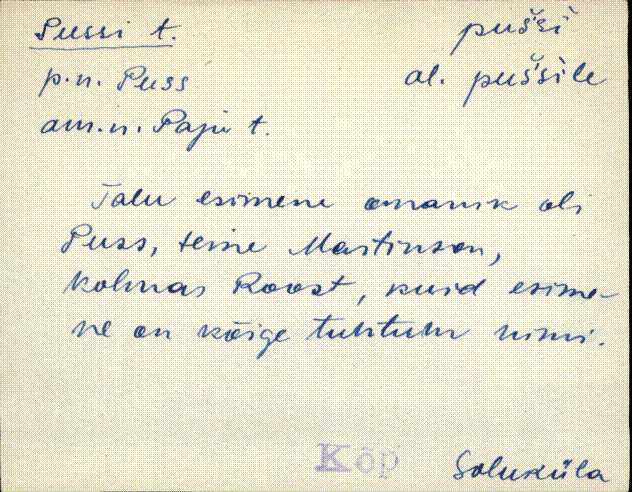 Pussi t.
pušši
p.n. Puss
al. puššile
am.n. Paju t.
Talu esimene omanik oli
Puss, teine Martinson,
kolmas Roost, kuid esime-
ne on kõige tuntum nimi.
Kõp
Soluküla